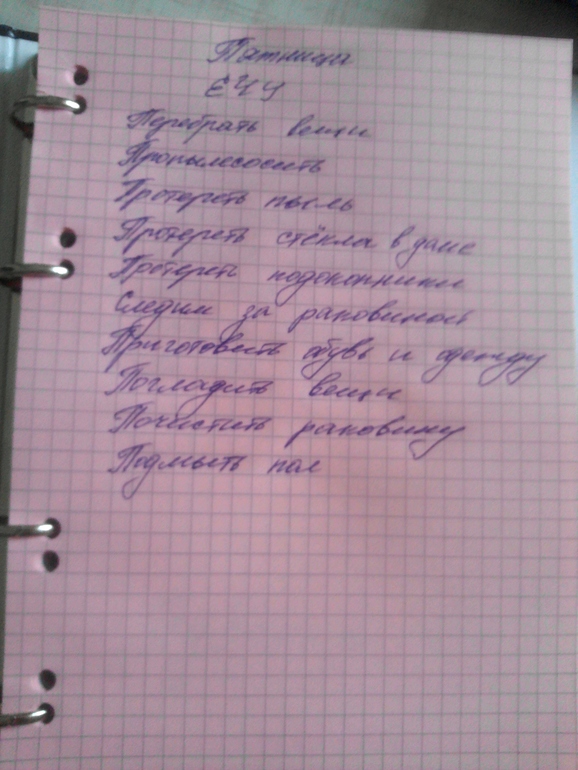 Пятница
ЕЧЦ
Перебрать вещи
Пропылесосить
Протереть пыль
Протереть стёкла в доме
Протереть подоконники
Следим за раковиной
Приготовить обувь и одежду
Погладить вещи
Почистить раковину
Подмыть пол